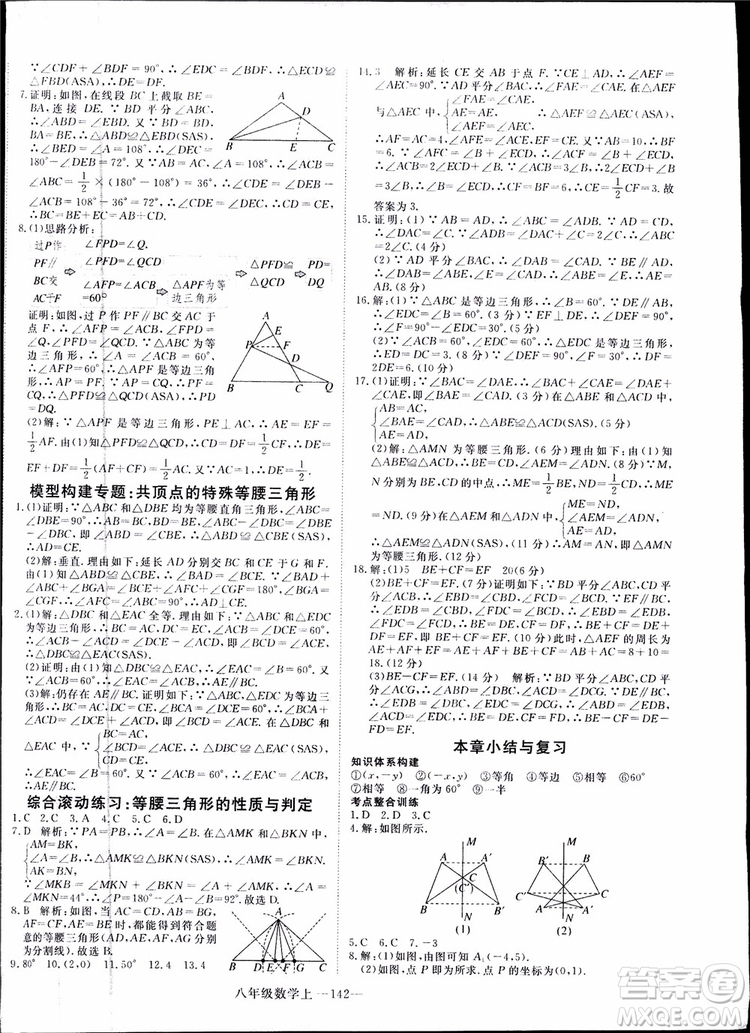 ∵∠CDF=∠BDF=90°,∴∠ECD=∠DBF.∴△ECD≌
△FBD(ASA).∴DE=DF.
7.证明:如图,在线段 BC 上截取 BE=
BA,连接 DE.∵BD 平分∠ABC,
∴∠ABD=∠EBD.又∵BD=BD,
∴△ABD≌△EBD(SAS).∴∠BED
=∠A=108°.∴∠DEC=
180°-∠BED=72°.又∵AB=AC,∠A=108°,∴∠ACB=
∠ABC=1/2×(180°-108°)=36°,∴∠CDE=180°-
∠ACB-∠DEC=180°-36°-72°=72°.∴∠CDE=
∠DEC.∴CD=CE.∴BC=BE+EC=AB+CD.
8.(1)思路分析:
过P作 PF∥BC AC于F
∠FPD=∠Q. ∠PFD=∠QCD ∠AFP=∠ACB=60°
△PFD≌△QCD △APF为等边三角形
PD=DQ
证明:如图,过 P 作 PF∥BC 交 AC 于
点 F,∴∠AFP=∠ACB,∠FPD=
∠Q,∠PFD=∠QCD.∵△ABC 为等
边三角形,∴∠A=∠ACB=60°,
∴∠AFP=60°,∴△APF 是等边三角
形,∴PF=PA=CQ,∴△PFD≌△QCD,∴PD=DQ.
(2)解:∵△APF 是等边三角形,PE⊥AC,∴AE=EF=
1/2AF.由(1)知△PFD≌△QCD,∴DF=CD=1/2CF,∴DE=
EF+DF=1/2AF+1/2CF=1/2AC.又∵AC=1,∴DE=1/2.
模型构建专题:共顶点的特殊等腰三角形
1.(1)证明:∵△ABC 和△DBE 均为等腰直角三角形,∠ABC=
∠DBE=90°,∴CB=AB,BD=BE,∠ABC-∠DBC=
∠DBE-∠DBC,即∠ABD=∠CBE,∴△ABD≌△CBE,
∴AD=CE.
(2)解:垂直.理由如下:延长 AD 分别交 BC 和 CE 于 G 和 F.
由(1)知△ABD≌△CBE,∴∠BAD=∠BCE.∵∠BAD+
∠ABC+∠BGA=∠BCE+∠AFC+∠CGF=180°,∠BGA=
∠CGF,∴∠AFC=∠ABC=90°,∴AD⊥CE.
2.(1)解:△DBC 和△EAC 全等.证明如下:∵△ABC 和△EDC
为等边三角形,∴∠ACB=60°,∠DCE=60°,AC=BC,DC=
EC,∴∠BCD=60°-∠ACD,∠ACE=60°-∠ACD,∴∠BCD=
∠ACE.∴△DBC≌△EAC(SAS).
(2)证明:由(1)知△DBC≌△EAC,∴∠EAC=∠B=60°.又
∵∠ACB=60°,∴∠EAC=∠ACB,∴AE∥BC.
(3)解:仍存在AE∥BC.证明如下:∵△ABC,△EDC为等边三
角形,∴BC=AC,DC=CE,∠BCA=∠DCE=60°,∴∠BCA+
∠ACD=∠DCE+∠ACD,即∠BCD=∠ACE.在△DBC和
△EAC中,{BC=AC, ∠BCD=∠ACE, CD=CE,∴△DBC≌△EAC(SAS),∴∠EAC=
∠B=60°.又∵∠ACB=60°,∴∠EAC=∠ACB,
∴AE∥BC.
综合滚动练习:等腰三角形的性质与判定
1.C 2.C 3.A 4.C 5.C 6.D
7.D 解析:∵PA=PB,∴∠A=∠B.在△AMK和△BKN中,
{AM=BK, ∠A=∠B, AK=BN,∴△AMK≌△BKN(SAS),∴∠AMK=∠BKN.
∵∠MKB=∠MKN+∠BKN=∠A+∠AMK,∴∠A=
∠MKN=18°,∴∠P=180°-∠A-∠B=144°.故选D.
8.B 解析:如图,当 AC=CD,AB=BG,
AF=CF,AE=BE 时,都能得到符合题
意的等腰三角形(AD,AE,AF,AG分别
为分割线).故选B.
9.80° 10.(2,0) 11.50° 12.4 13.4
14.3 解析:延长 CE 交 AB 于点 F.∵CE⊥AD,∴∠AEF=
∠AEC=90°.∵AD平分∠BAC,∴∠FAE=∠CAE.在△AEF
与△AEC中,{∠FAE=∠CAE, AE=AE, ∠AEF=∠AEC,∴△AEF≌△AEC(ASA),
∴AF=AC=4,EF=CE=1/2CF,∴BF=AB-AF=10-4=
6.∵∠AFC=∠B+∠BCF=∠ACF,∠ACB=∠ACF+∠BCF=
3∠B,∴∠BCF=∠B,∴CF=BF=6,∴CE=1/2CF=3.故
答案为3.
15.证明:(1)∵AB=AD,∴∠ABC=∠ADB.又∵AD=CD,
∴∠DAC=∠C,∴∠ABC=∠ADB=∠DAC+∠C=2∠C.
(4分)
(2)∵AD平分∠BAC,∴∠DAB=∠CAD.∵∠CAD=∠C,
∴∠DAB=∠C.∵∠B=∠B,∴∠BEA=∠BAC.(8分)
16.解:(1)∵△ABC是等边三角形,∴∠B=60°.∵DE∥AB,
∴∠EDC=∠B=60°.(3分)∵EF⊥DE,∴∠DEF=90°,
∴∠F=90°-∠EDC=30°.(5分)
(2)∵∠ACB=60°,∠EDC=60°,∴△EDC是等边三角形,
∴ED=DC=3.(8分)∵∠DEF=90°,∠F=30°,∴DF=
2DE=6.(10分)
17.(1)证明:∵∠BAC=∠DAE,∴∠BAC+∠CAE=∠DAE+
∠CAE,∴∠BAE=∠CAD.(3分)在△ABE与△ACD中,
{AB=AC, ∠BAE=∠CAD, AE=AD,∴△ABE≌△ACD(SAS).(5分)
(2)解:△AMN为等腰三角形.(6分)理由如下:由(1)知
△ABE≌△ACD,∴BE=CD,∠AEM=∠ADN.∵N,
M分别为CD,BE的中点,∴ME=1/2BE,ND=1/2CD,∴ME
=ND.(9分)在△AEM与△ADN中,{AE=AD, ∠AEM=∠ADN, ME=ND,
∴△AEM≌△ADN(SAS),∴AM=AN,即△AMN为等
腰三角形.(12分)
18.解:(1)5 BE+CF=EF 20(6分)
(2)BE+CF=EF.(7分)证明如下:∵BD平分∠ABC,CD平
分∠ACB,∴∠EBD=∠CBD,∠FCD=∠BCD.∵EF∥
BC,∴∠EDB=∠CBD,∠FDC=∠BCD,∴∠EBD=
∠EDB,∠FDC=∠FCD,∴BE=DE,CF=DF,∴EF=DE+
DF,即BE+CF=EF.(10分)此时,△AEF的周长为
AE+EF+AF=AE+BE+CF+AF=AB+AC=8+10=
18.(12分)
(3)BE-CF=EF.(14分) 解析:∵BD平分∠ABC,CD
平分∠ACG,∴∠EBD=∠DBC,∠ACD=∠DCG.∵EF∥
BC,∴∠EDB=∠DBG,∠EDC=∠DCG,∴∠EBD=
∠EDB,∠FDC=∠FCD,∴BE=ED,FD=CF.又∵ED-
FD=EF,∴BE-CF=EF.
本章小结与复习
知识体系构建
①(x,-y) ②(-x,y) ③相等 ④等边 ⑤相等 ⑥60°
⑦相等 ⑧一半 ⑨60° ⑩一半
考点整合训练
1.D 2.D 3.C
4.解:如图所示.
5.C 6.C 7.-3
8.解:(1)图略.由图可知A₁(-4,5).
(2)如图所示,点P即为所求.点P的坐标为(0,1)
八年级数学上 —142—
作业帮
MXQE.COM